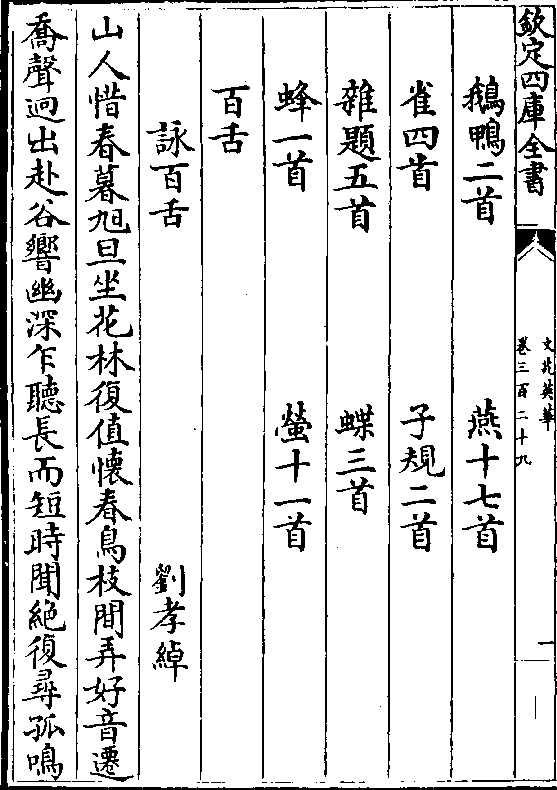 欽定四庫全書
文苑英華
卷三百二十九
一
鵝鴨二首 燕十七首
雀四首 子規二首
雜題五首 蝶三首
蜂一首 螢十一首
百舌
詠百舌 劉孝綽
山人惜春暮旭旦坐花林復值懐春鳥枝間弄好音遷
喬聲迥出赴谷響幽深乍聽長而短時聞絶復尋孤鳴